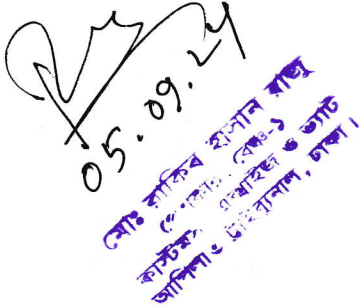 05.09.24
মোঃ রাকিব হাসান রাজু
বেঞ্চ-১
কাস্টমস, এক্সাইজ ও ভ্যাট
আপিলাত ট্রাইব্যুনাল, ঢাকা।